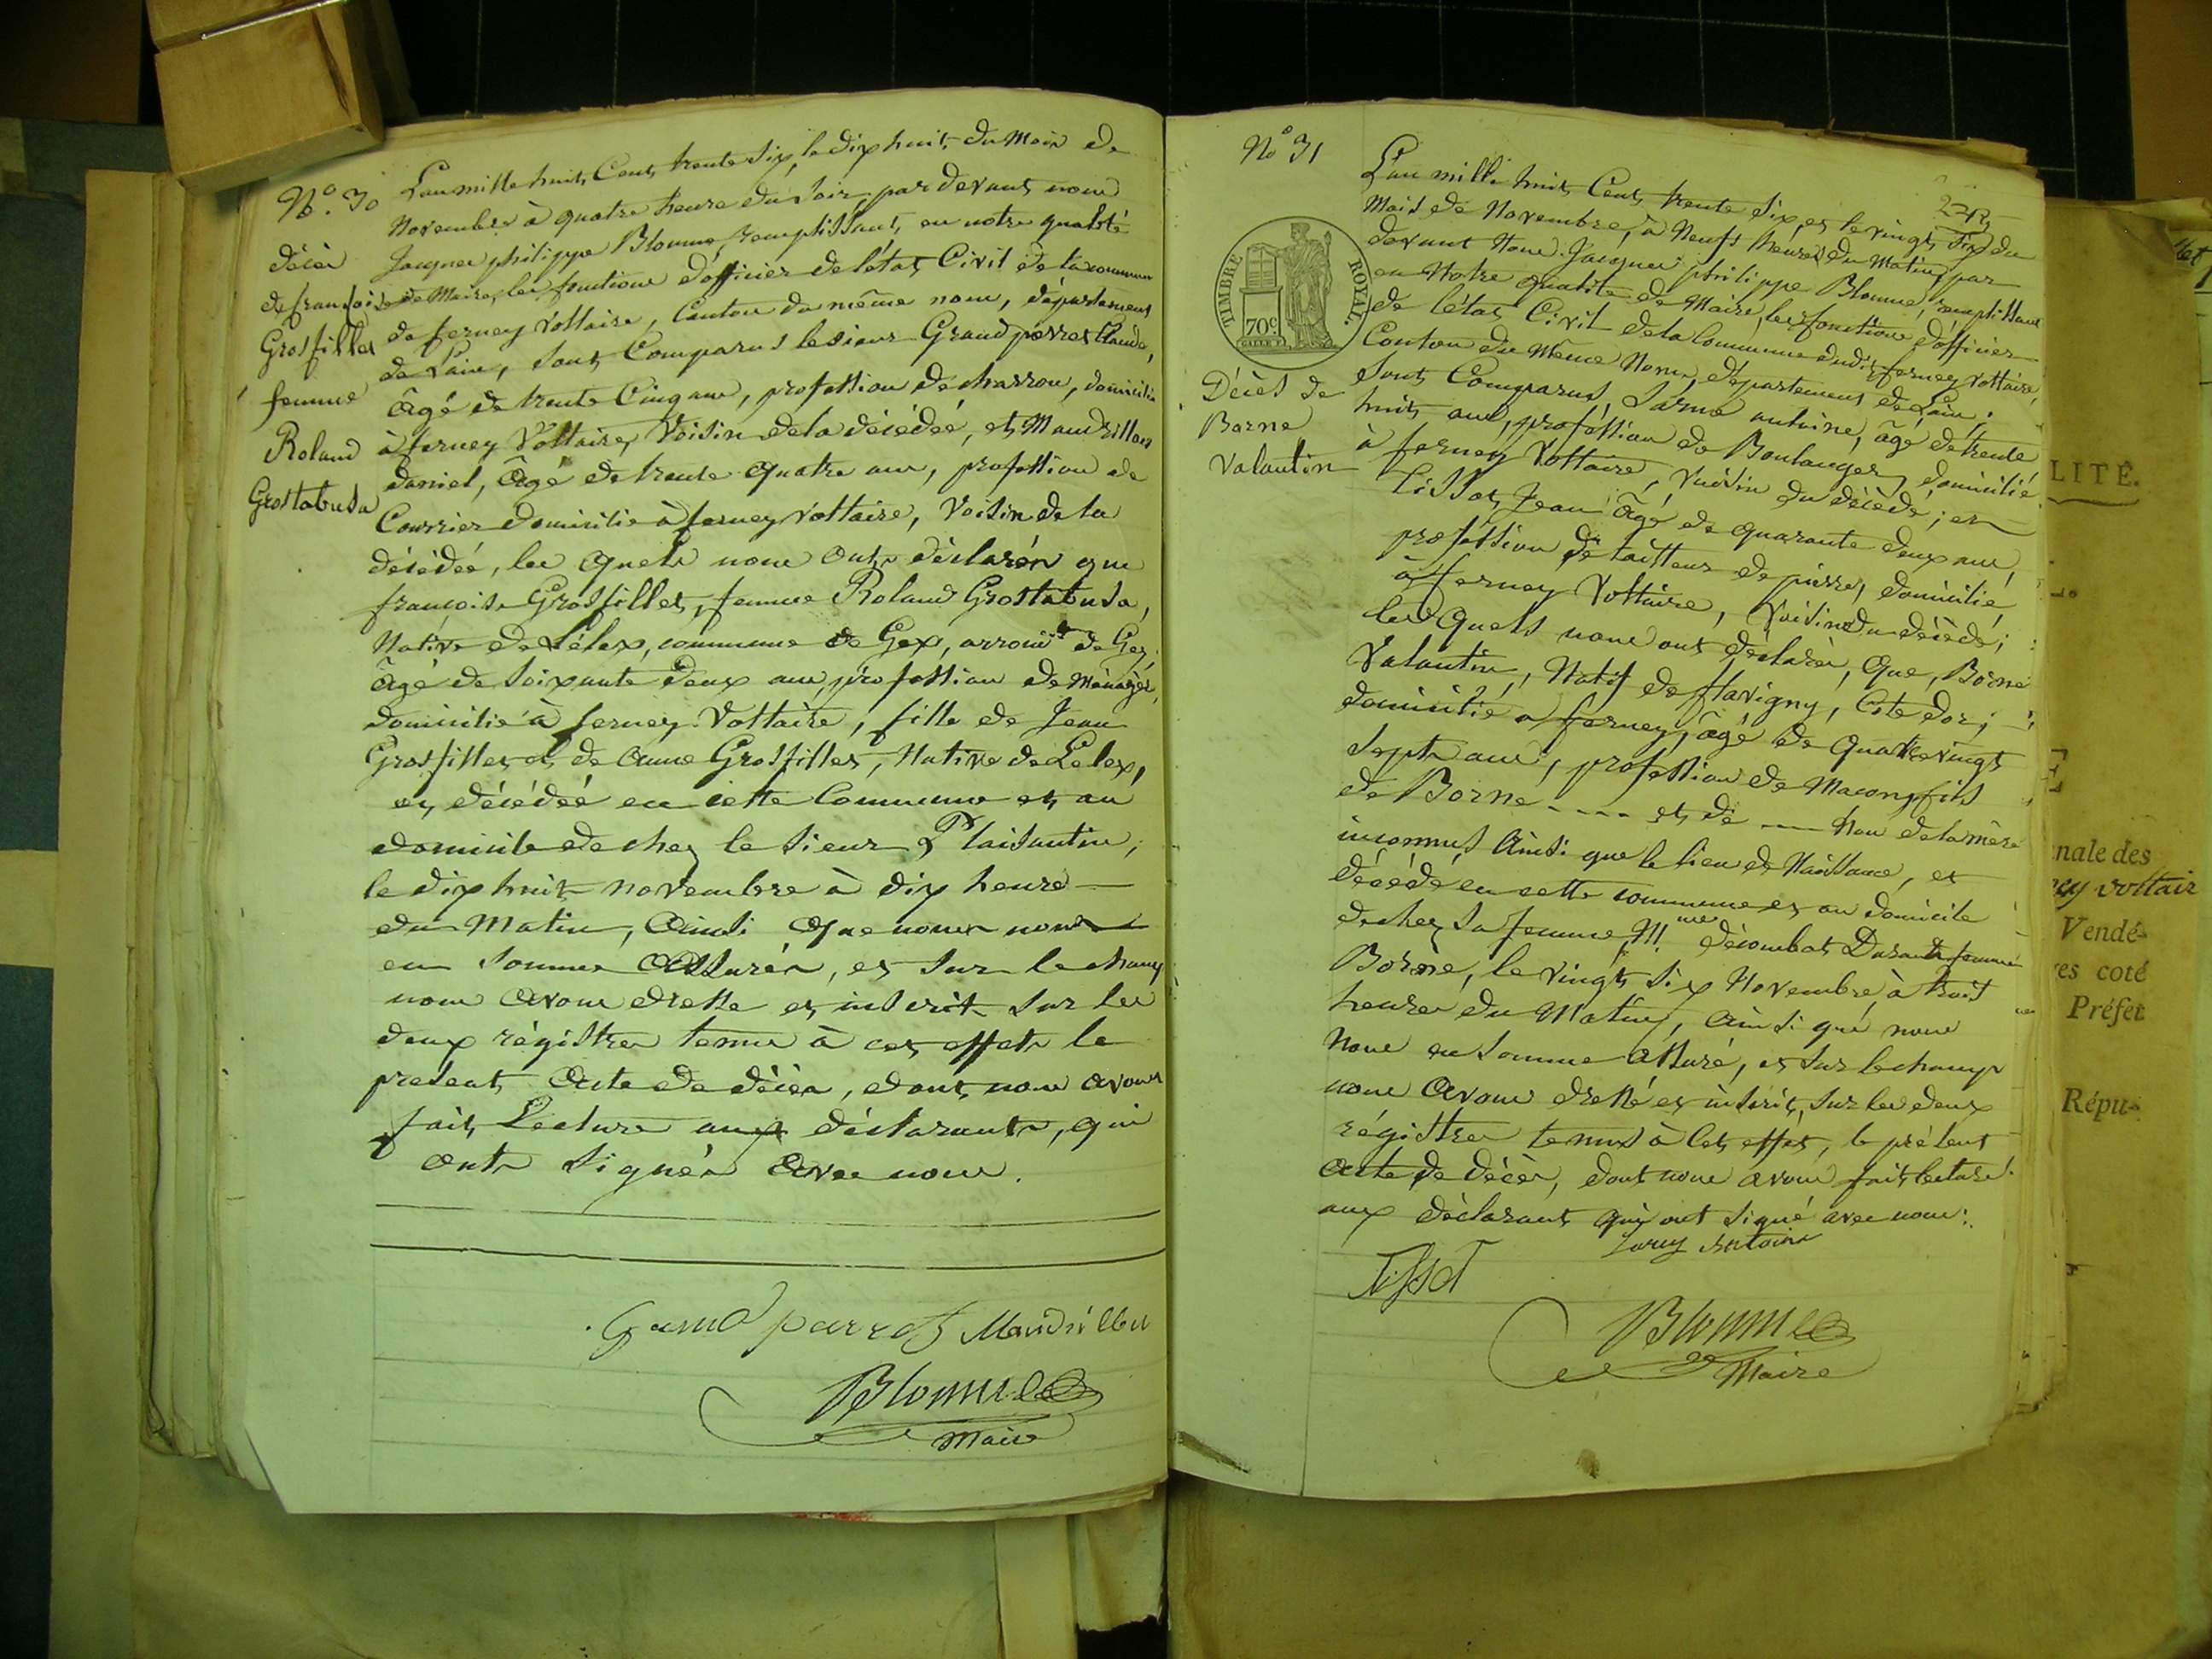 N.º 30
décès
de françoise
Grosfillex
femme
Roland
Grostabusa
L'an mille huit Cent trente six, le dix huit du Mois de
Novembre à quatre heure du soir, par devant nous
Jacques philippe Blomme, remplissant en notre qualité
de Maire, les fonctions d'officier de l'état Civil de la commune
de ferney Voltaire, Canton du même nom, département
de L'ain, sont Comparus le sieur Grand perret Claude,
âgé de trente Cinq ans, profession de charron, domicilié
à ferney Voltaire, Voisin de la décédée, et Maudrillon
daniel, âgé de trente quatre ans, profession de
Courrier domicilié à ferney Voltaire, Voisin de la
décédée, les quels nous ont déclarés que
françoise Grosfillex, femme Roland Grostabusa,
Native de Lélex, commune de Gex, arrond.t de Gex,
âgé de soixante deux ans, profession de Ménager,
domicilié à ferney Voltaire, fille de Jean
Grosfillex et de anne Grosfillex, Native de Lélex,
est décédée en cette Commune et au
domicile de chez le sieur Plaisantin,
le dix huit novembre à dix heure
du Matin, Ainsi Que nous nous
en sommes Assurés, et sur le champ
nous Avons dressé et inscrit sur les
deux régistres tenus à cet effets le
présent Acte de décès, dont nous avons
fait Lecture aux déclarants, qui
ont signés avec nous.
Grand perret Maudrillon
Blomme
Maire
Nº 31
TIMBRE ROYAL.
70c
Décès de
Borne
Valantin
273
L'an mille huit Cent trente six, et le vingt six du
Mois de Novembre, à Neufs heures du Matin, par
devant Nous Jacques philippe Blomme, remplissant
en Notre qualité de Maire, les fonctions d'officier
de l'état Civil de la Commune dudit ferney Voltaire,
Canton du Même Nom, département de L'ain,
sont Comparus, Larme antoine, âgé de trente
huit ans, profession de Boulanger, domicilié
à ferney Voltaire, Voisin du décédé; et
Tissot Jean âgé de quarante deux ans,
profession de tailleur de pierre, domicilié
à ferney Voltaire, Voisin du décédé;
les Quels nous ont déclarés, Que, Borne
Valantin, Natif de flavigny, Côte d'or;
domicilié à ferney, âgé de Quatre vingt
sept ans, profession de Macon, fils
de Borne - - - - et de - - Nom de la mère
inconnus Ainsi que le lieu de Naissance, est
décédé en cette commune et au domicile
de chez sa femme M.me décombat femme
Borne, le vingt six Novembre à trois
heures du Matin, Ainsi que nous
Nous en sommes Assuré, et sur le champ
nous Avons dressé et inscrit, sur les deux
régistres tenus à cet effet, le présent
Acte de décès, dont nous avons fait lecture
aux déclarants qui ont signé avec nous.
Antoine
Tissot
Blomme
Maire
LITÉ.
nale des
ey voltair
Vendé-
res coté
Préfet
Répu-